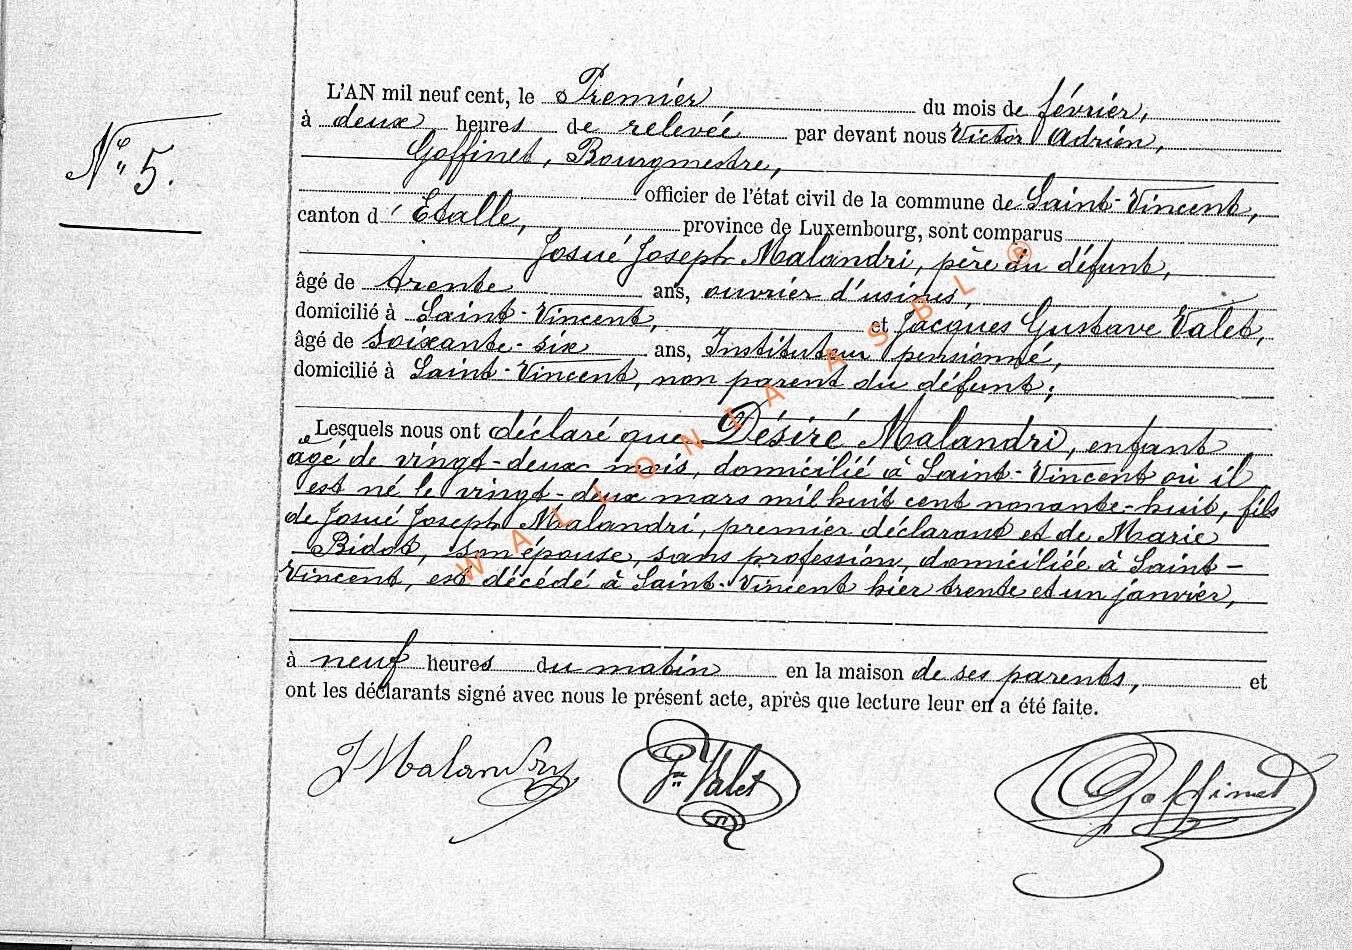 L'AN mil neuf cent, le Premier du mois de février,
à deux heures de relevée par devant nous Victor Adrien,
Goffinet, Bourgmestre,
N° 5.
officier de l'état civil de la commune de Saint-Vincent,
canton d'Etalle, province de Luxembourg, sont comparus
Josué Joseph Malandri, père du défunt,
âgé de trente ans, ouvrier d'usines,
domicilié à Saint-Vincent, et Jacques Gustave Valet,
âgé de soixante-six ans, Instituteur pensionné,
domicilié à Saint-Vincent, non parent du défunt;
Lesquels nous ont déclaré que Désiré Malandri, enfant
âgé de vingt-deux mois, domicilié à Saint-Vincent où il
est né le vingt-deux mars mil huit cent nonante-huit, fils
de Josué Joseph Malandri, premier déclarant et de Marie
Bidot, son épouse, sans profession, domiciliée à Saint-
Vincent, est décédé à Saint-Vincent hier trente et un janvier,
à neuf heures du matin en la maison de ses parents, et
ont les déclarants signé avec nous le présent acte, après que lecture leur en a été faite.
J Malandry
Valet
Goffinet
WALLONIA ASBL ®